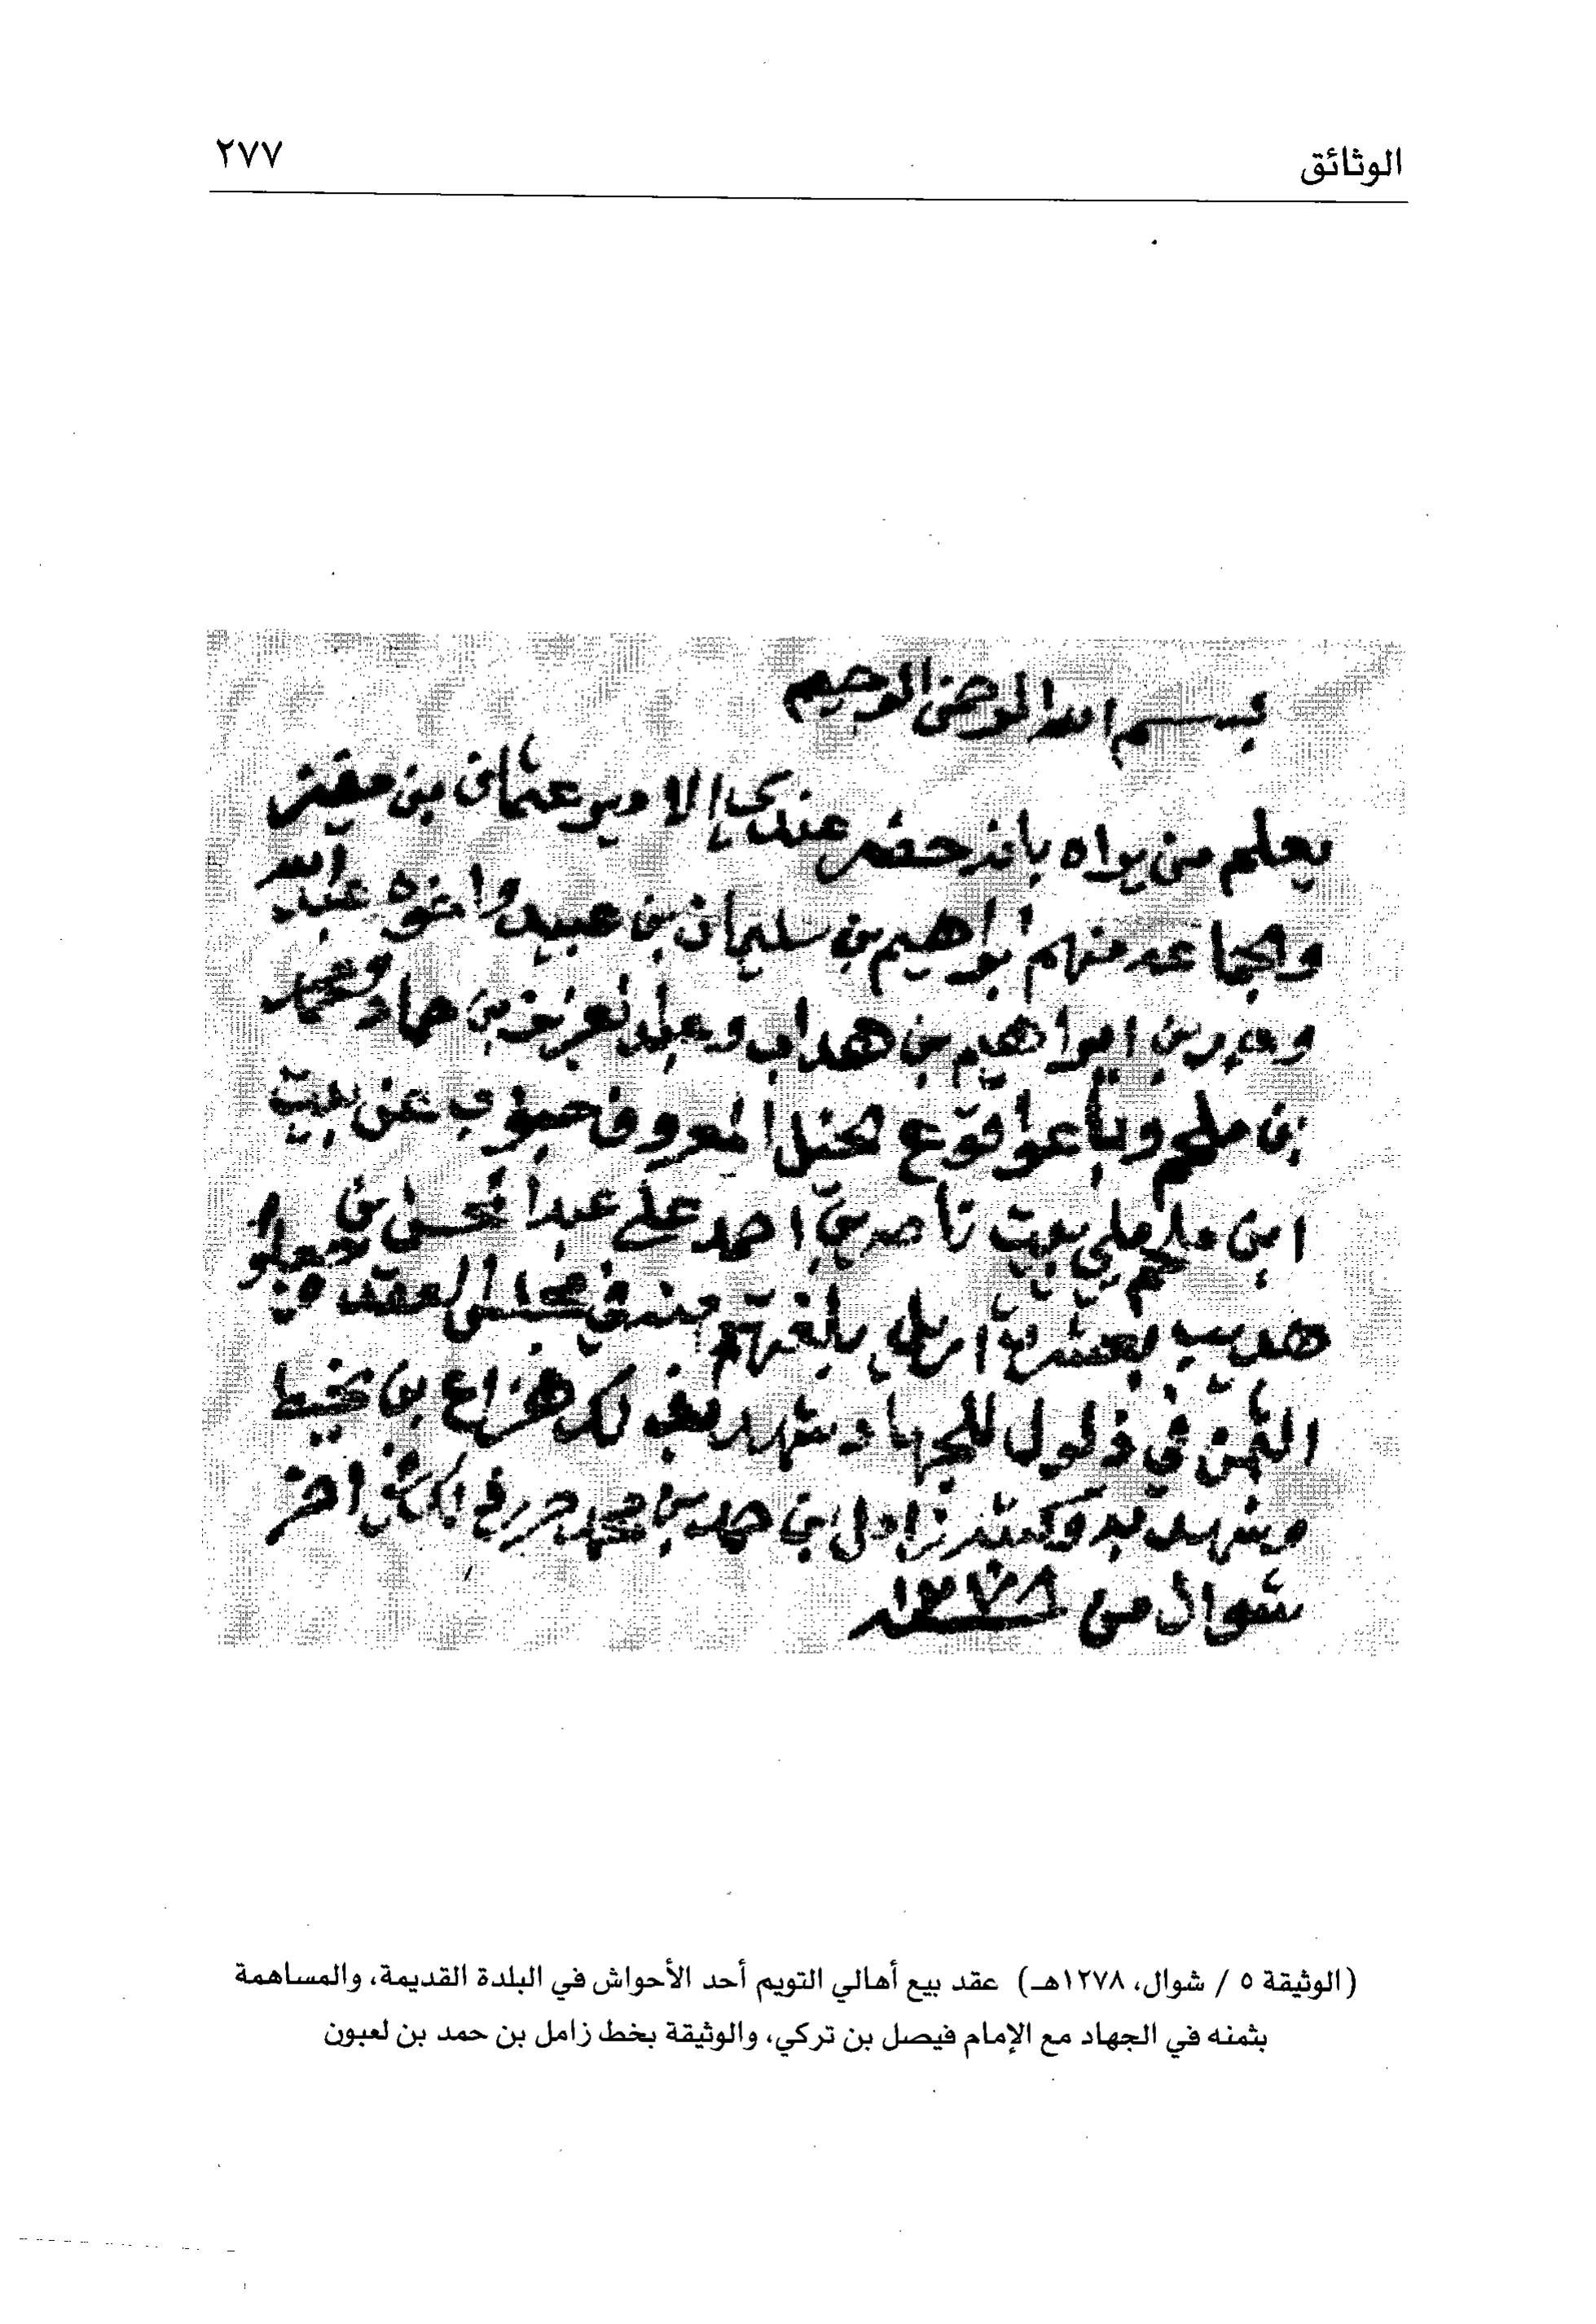 الوثائق
٢٧٧
بسم الله الرحمن الرحيم
يعلم من يراه بانه حضر عندي الامير عثمان بن مفيز
والجماعه منهم ابراهيم بن سليمان بن عبيد واخوه عبدالله
بن ابراهيم بن هداب وعبدلعزيز بن حماد ومحمد
بن ملحم وباعوا قوع المعروف عن بيت
ابن ملحم بيت ناصر بن احمد على عبدالمحسن بن
بعشرين اريل بلغتهم منه في مجلس العقد وجعلوا
الثمن في ذلول للجهاد شهد بذلك هزاع بن
وشهد به وكتبه زامل ابن حمد بن محمد حرر في اخر
شوال من ١٢٧٨
(الوثيقة ٥ / شوال، ١٢٧٨هـ) عقد بيع أهالي التويم أحد الأحواش في البلدة القديمة، والمساهمة
بثمنه في الجهاد مع الإمام فيصل بن تركي، والوثيقة بخط زامل بن حمد بن لعبون